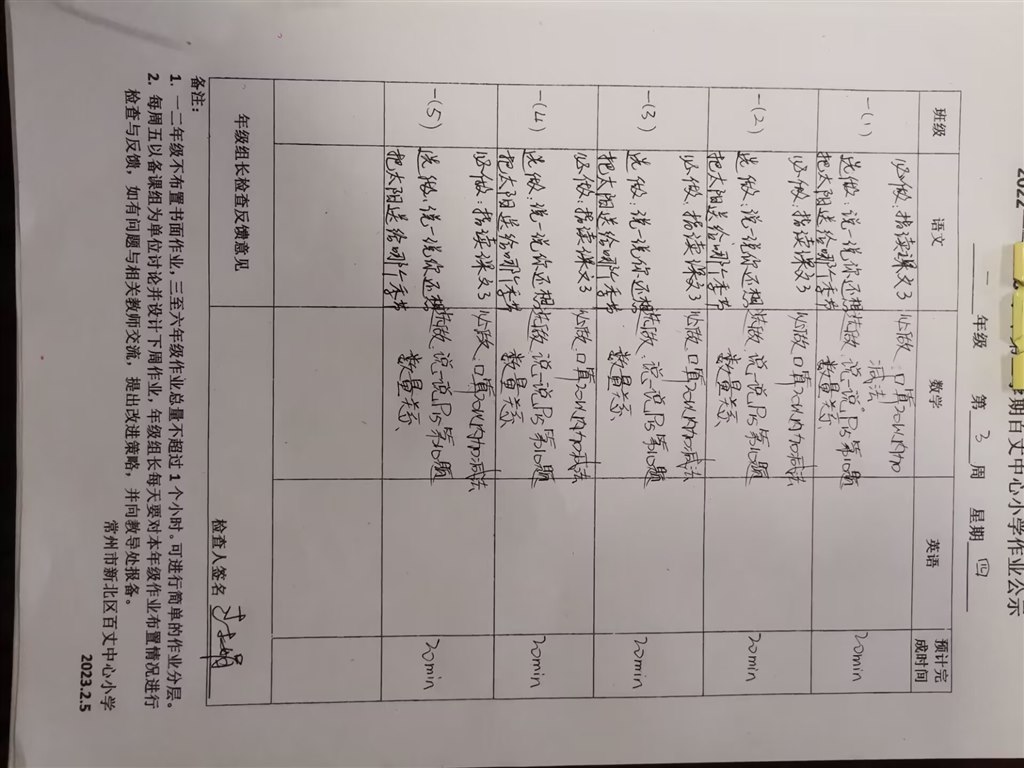 2022
学期百丈中心小学作业公示
一 年级 第 3 周 星期 四
班级 语文 数学 英语 预计完成时间
一(1) 必做:指读课文3 必做:口算20以内加减法 20min
选做:说一说你还想把太阳送给哪个季节 选做:说一说P5第10题数量关系
一(2) 必做:指读课文3 必做:口算20以内加减法 20min
选做:说一说你还想把太阳送给哪个季节 选做:说一说P5第10题数量关系
一(3) 必做:指读课文3 必做:口算20以内加减法 20min
选做:说一说你还想把太阳送给哪个季节 选做:说一说P5第10题数量关系
一(4) 必做:指读课文3 必做:口算20以内加减法 20min
选做:说一说你还想把太阳送给哪个季节 选做:说一说P5第10题数量关系
一(5) 必做:指读课文3 必做:口算20以内加减法 20min
选做:说一说你还想把太阳送给哪个季节 选做:说一说P5第10题数量关系
年级组长检查反馈意见 检查人签名
备注:
1. 一二年级不布置书面作业,三至六年级作业总量不超过 1 个小时。可进行简单的作业分层。
2. 每周五以备课组为单位讨论并设计下周作业,年级组长每天要对本年级作业布置情况进行
检查与反馈,如有问题与相关教师交流,提出改进策略,并向教导处报备。
常州市新北区百丈中心小学
2023.2.5